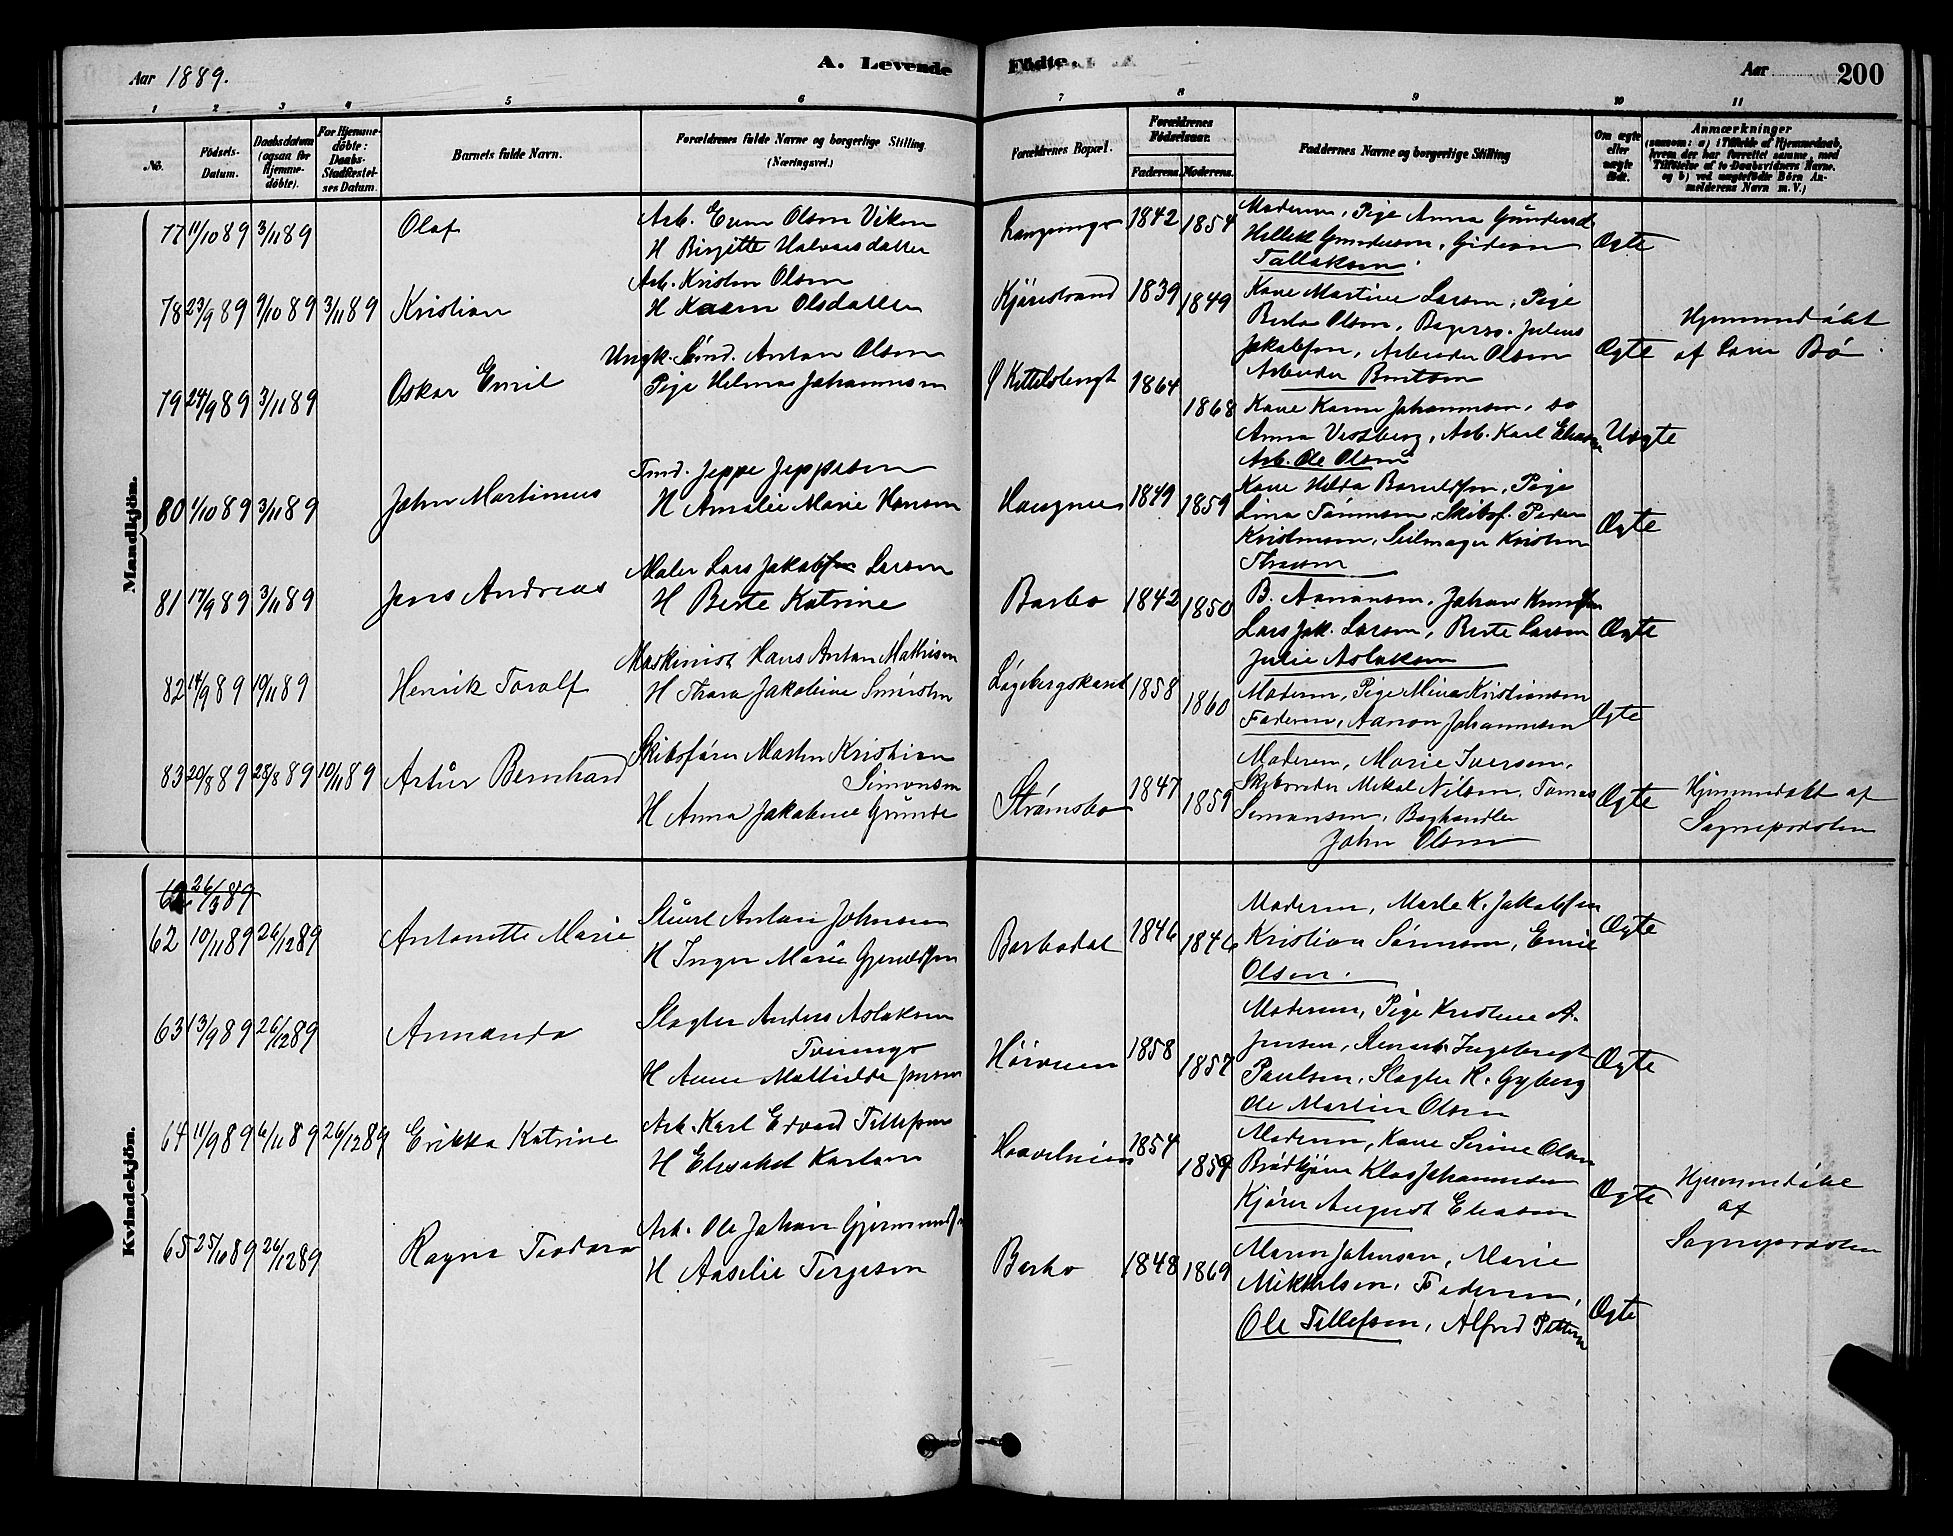 Aar 1889.
A. Levende
Fødte.
Aar
200
1 2 3 4 5 6 7 8 9 10 11
No.
Födsels-
Datum.
Daabsdatum
(ogsaa for
Hjemme-
döbte).
For Hjemme-
döbte:
Daabs-
Stadfæstel-
ses Datum.
Barnets fulde Navn.
Forældrenes fulde Navne og borgerlige Stilling
(Næringsvei.)
Forældrenes Bopæl.
Forældrenes
Födselsaar.
Faderens. Moderens.
Faddernes Navne og borgerlige Stilling
Om ægte
eller
uægte
födt.
Anmærkninger
(saasom: a) i Tilfælde af Hjemmedaab,
hvem der har forrettet samme, med
Tilföielse af to Daabsvidners Navne,
og b) ved uægtefödte Börn An-
melderens Navn m. V.)
Mandkjön.
77 11/10 89 3/11 89
Olaf
Arb. Even Olsen Viken
H Birgitte Halvorsdatter
1842
1854
Moderen, Pige Anna
Gunderson, Gideon
Tallaksen.
Ægte
78 23/9 89 9/10 89 3/11 89
Kristian
Arb. Kristen Olsen
H Karen Olsdatter
Kjørestrand
1839
1849
Kone Martine Larsen, Pige
Berta Olsen, Julius
Jakobsen, Arbeider Olsen
Arbeider
Ægte
Hjemmedøbt
af Bø.
79 24/9 89 3/11 89
Oskar Emil
Ungk. Sømd. Anton Olsen
Pige Helma Johannesen
1864
1868
Kone Karen Johannesen, do
Anna Vestberg, Arb. Karl
Arb. Ole Olsen
Uægte
80 1/10 89 3/11 89
John Martinius
Jeppe Jeppesen
H Amalie Marie Hansen
1849
1859
Kone Hilda
Lina Skibsf. Peder
Kristensen, Seilmager Kristen
Ægte
81 17/9 89 3/11 89
Jens Andreas
Maler Lars Jakobsen Larsen
H Berte Katrine
Barbo
1842
1850
B. Aanonsen, Johan
Lars Jak. Larsen, Berte Larsen
Julie Aslaksen
Ægte
82 14/9 89 10/11 89
Henrik Toralf
Maskinist Hans Anton Mathisen
H Thara Jakobine
1858
1860
Moderen, Pige Mina Kristiansen
Faderen, Aanon Johannesen
Ægte
83 20/8 89 28/8 89 10/11 89
Artur Bernhard
Skibsfører Marten Kristian
Simonsen
H Anna Jakobine Grunde
Strømsbo
1847
1859
Moderen, Marie Iversen,
Mikal Nilsen, Tomas
Simonsen, Boghandler
John Olsen
Ægte
Hjemmedøbt af
Sognepresten
Kvindekjön.
62 26/3 89
62 10/11 89 26/12 89
Antonette Marie
Stuert Anton Johnsen
H Inger Marie
Barbodal
1846
1846
Moderen, Marte K. Jakobsen
Kristian Sørensen, Emil
Olsen.
Ægte
63 13/9 89 26/12 89
Amanda
Slagter Anders Aslaksen
H Anne Mathilde Jensen
1858
1857
Moderen, Pige Kristine A.
Jensen, Ingebregt
Paulsen, Slagter K. Gyberg
Ole Martin Olsen
Ægte
64 11/9 89 6/11 89 26/12 89
Erikka Katrine
Arb. Karl Edvard Tellefsen
H Elisabet Karlsen
1854
1859
Moderen, Kone Serine Olsen
Klas Johannesen
Kjører August Eliasen
Ægte
Hjemmedøbt
af
Sognepresten
65 25/10 89 26/12 89
Ragna Teodora
Arb. Ole Johan
H Aaselie Terjesen
Barbo
1848
1869
Maren Johnsen, Marie
Mikkelsen, Faderen,
Ole Tellefsen, Alfred
Ægte